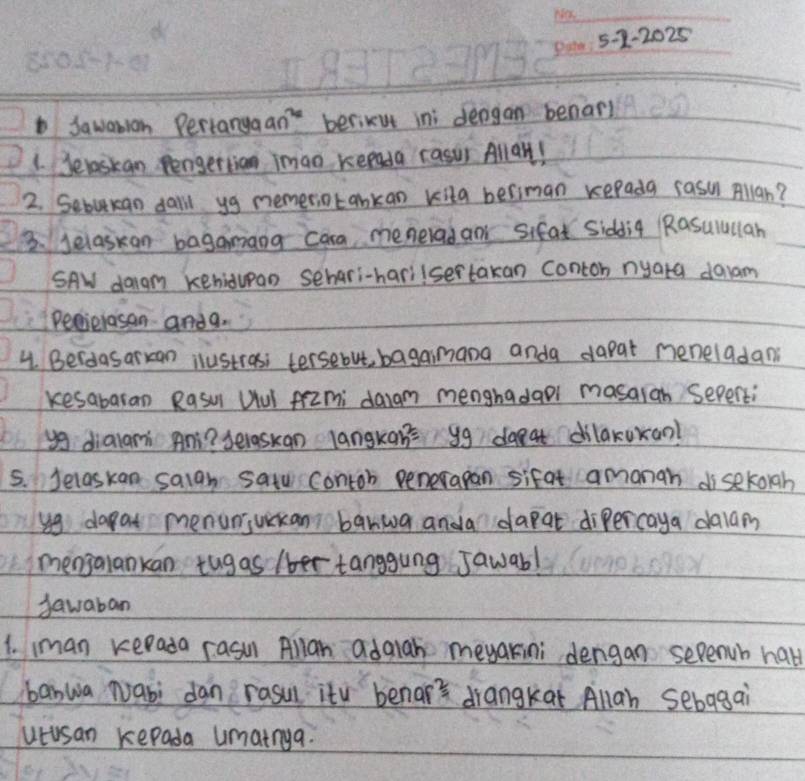 No.
Date: 5-1-2025
b Jawablah Pertanyaan² berikut ini dengan benar!
1. Jelaskan Pengertian iman kepada rasul Allah!
2. Sebutkan dalil yg memerintahkan kita beriman kepada rasul Allah?
3. Jelaskan bagaimana cara meneladani sifat siddiq Rasulullah
SAW dalam kehidupan sehari-hari! sertakan contoh nyata dalam
Penjelasan anda.
4. Berdasarkan ilustrasi tersebut, bagaimana anda dapat meneladani
kesabaran Rasul Ulul Azmi dalam menghadapi masalah seperti
yg dialami Ani? Jelaskan langkah² yg dapat dilakukan!
5. Jelaskan salah satu contoh penerapan sifat amanah disekolah
yg dapat menunjukkan bahwa anda dapat dipercaya dalam
menjalankan tugas /ber tanggung Jawab!
Jawaban
1. iman kepada rasul Allah adalah meyakini dengan sepenuh hati
bahwa Nabi dan rasul itu benar² diangkat Allah sebagai
utusan kepada umatnya.